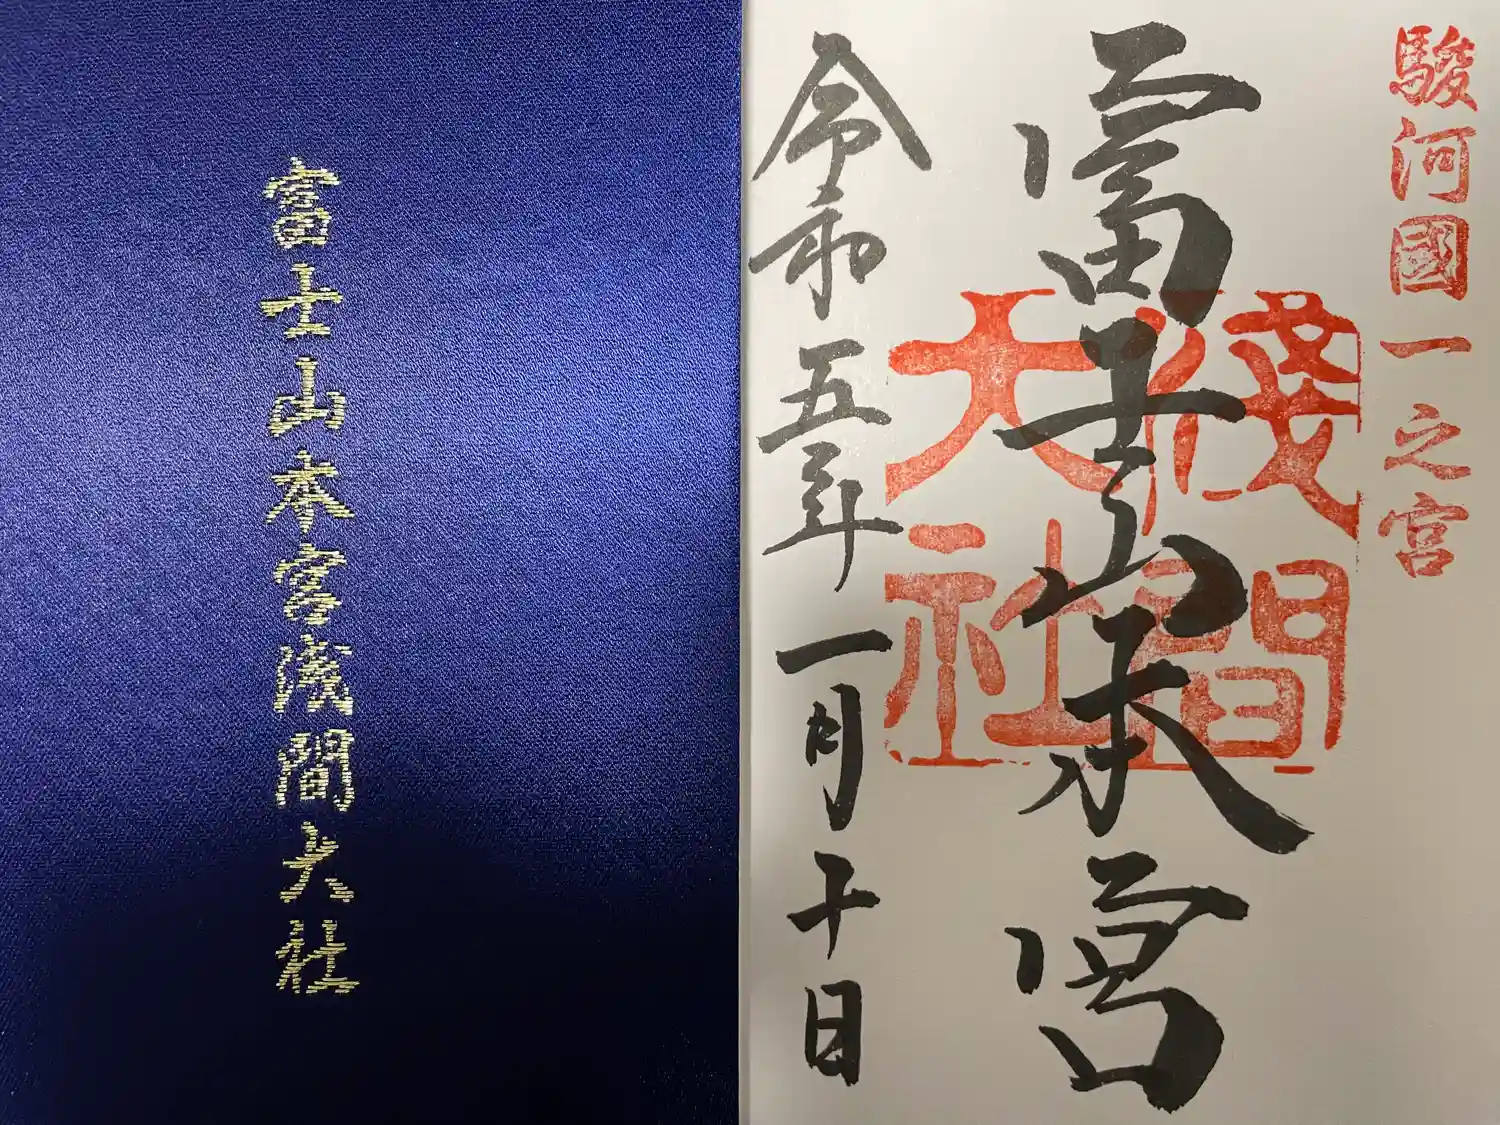 富士山本宮浅間大社
駿河國一之宮
富士山本宮
淺間大社
令和五年一月十日